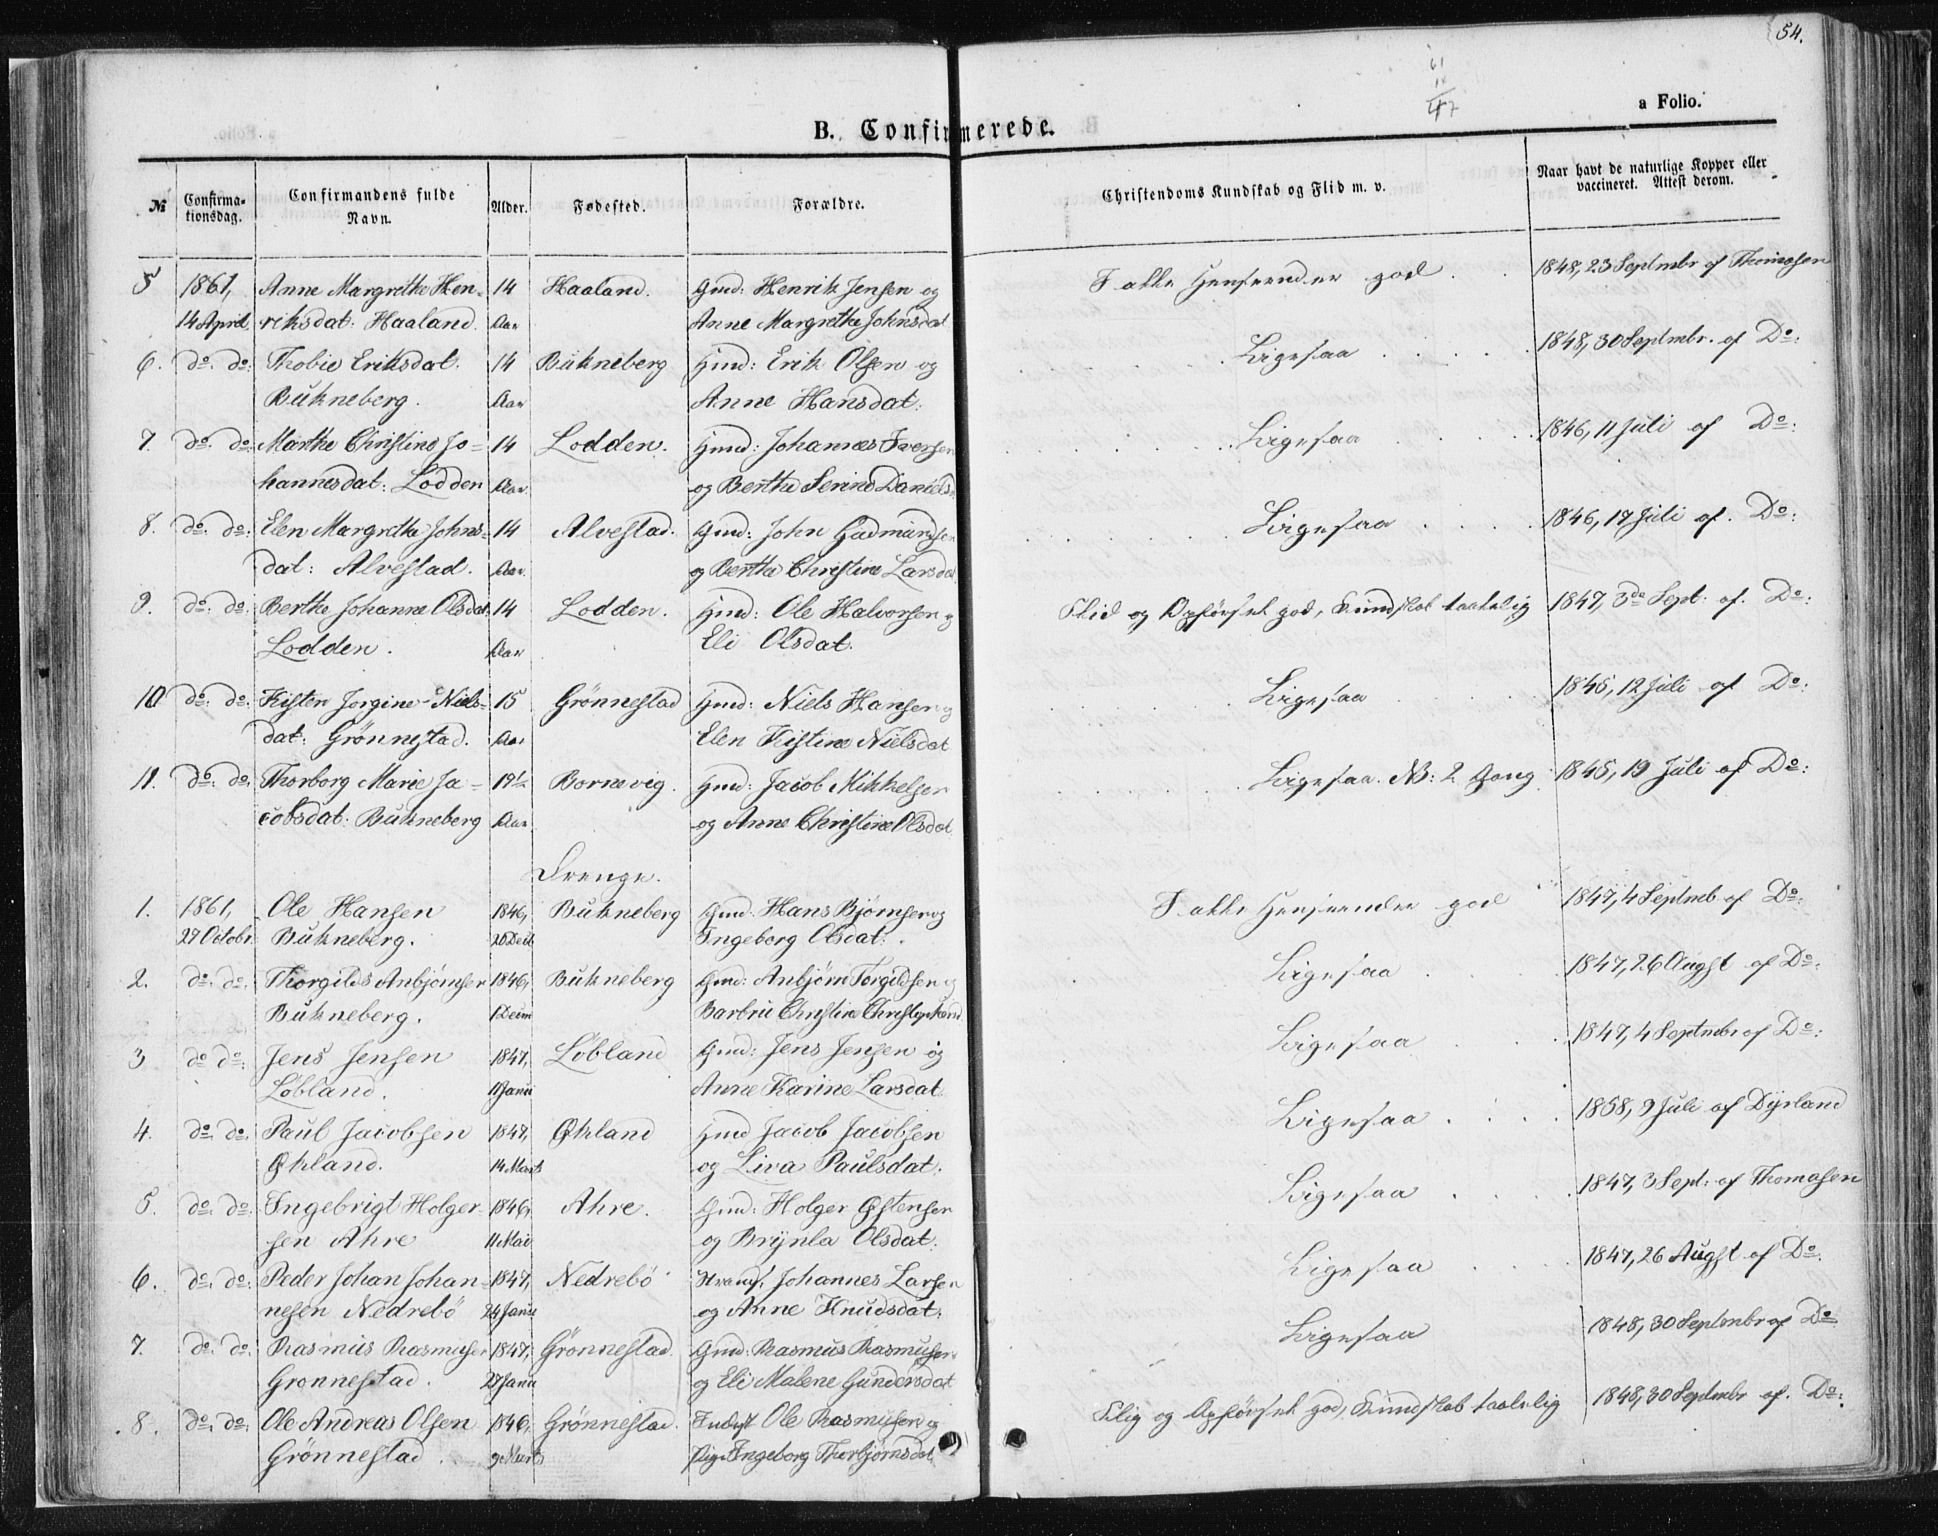 54.
61
14
47
a Folio.
B. Confirmerede.
№ Confirma-tionsdag. Confirmandens fulde Navn. Alder. Fødested. Forældre. Christendoms Kundskab og Flid m. v. Naar havt de naturlige Kopper eller vaccineret. Attest derom.
5 1861, Anne Margrethe Hen- 14 Haaland. Gmd: Henrik Jensen og I alle Henseender god 1848, 23 Septmbr af Thomasen
14 April. riksdat: Haaland. Aar Anne Margrethe Johnsdat
6. do. do: Thobie Eriksdat. 14 Bukneberg Hmd: Erik Olsen og Ligesaa 1848, 30 Septmbr. af Do:
Bukneberg. Aar Anne Hansdat:
7. do. do: Marthe Christine Jo- 14 Lodden. Hmd: Johannes Iversen Ligesaa 1846, 11 Juli af Do:
hannesdat: Lodden Aar og Berthe Serine Daniels
8. do: do: Elen Margrethe Johns- 14 Alvestad. Gmd: John Gudmandsen Ligesaa 1846, 17 Juli af. Do:
dat: Alvestad. Aar. og Berthe Christine Larsdat
9. do: do: Berthe Johanne Olsdat 14 Lodden. Hmd: Ole Halvorsen og Flid og Opførsel god, Kundskab taalelig 1847, 3de Sept: af. Do:
Lodden. Aar Eli Olsdat.
10 do: do: Kisten Jorgine Niels- 15 Grønnestad Hmd: Niels Hansen og Ligesaa 1845, 12 Juli af Do:
dat: Grønnestad. Aar Elen Kistine Nielsdat
11. do: do: Thorborg Marie Ja- 19½ Bornevig. Hmd: Jacob Mikkelsen Ligesaa. NB: 2 Gang 1845, 19 Juli af Do:
cobsdat: Bukneberg Aar og Anne Christine Olsdat
Drenge.
1. 1861, Ole Hansen 1846, Bukneberg Gmd: Hans Bjørnsen og I alle Henseender god 1847, 4 Septmb af Do:
27 Octobr. Bukneberg. Ingeborg Olsdat:
2. do. do: Thorgilds Anbjørnsen 1846, Bukneberg Gmd: Anbjørn Torgildsen og Ligesaa 1847, 26 Augst af Do:
Bukneberg. Barbru Christine
3 do do: Jens Jensen 1847, Løbland Gmd: Jens Jensen og Ligesaa 1847, 4 Septmbr af Do:
Løbland. 11 Janu Anne Karine Larsdat:
4. do. do: Paul Jacobsen 1847, Økland Hmd Jacob Jacobsen Ligesaa 1858, 9 Juli af Dyrland
Økland. 14 Marts og Liva Paulsdat.
5. do. do: Ingebrigt Holger- 1846, Ahre. Gmd: Holger Østensen Ligesaa 1847, 3 Sept: af Thomasen
sen Ahre 11 Mai og Brynla Olsdat:
6. do. do: Peder Johan Johan- 1847, Nedrebö Johannes Larsen Ligesaa 1847, 26 Augst af Do:
nesen Nedrebö 24 Janu og Anne Knudsdat:
7. do. do: Rasmus Rasmusen 1847, Grönnestad. Gmd: Rasmus Rasmusen Ligesaa 1848, 30 Septmbr af Do
Grønnestad. 27 Janu og Eli Malene Gundersdat
8. do: do: Ole Andreas Olsen 1846, Grönnestad. Inderst Ole Rasmusen og Flig og Opførsel god, Kundskab taalelig 1848, 30 Septmbr af. Do:
Grönnestad. 9 Marts Pige Ingeborg Thorbjørnsdat